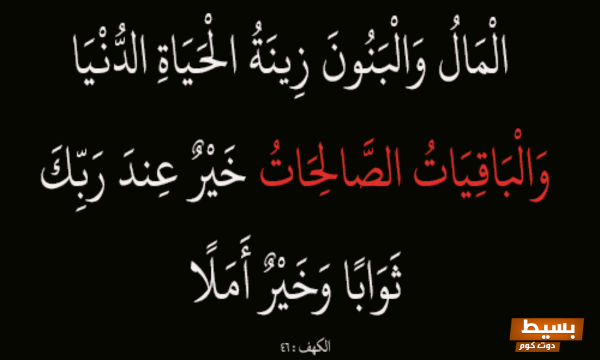 الْمَالُ وَالْبَنُونَ زِينَةُ الْحَيَاةِ الدُّنْيَا
وَالْبَاقِيَاتُ الصَّالِحَاتُ خَيْرٌ عِندَ رَبِّكَ
ثَوَابًا وَخَيْرٌ أَمَلًا
الكهف : ٤٦
بسيط
دوت كوم